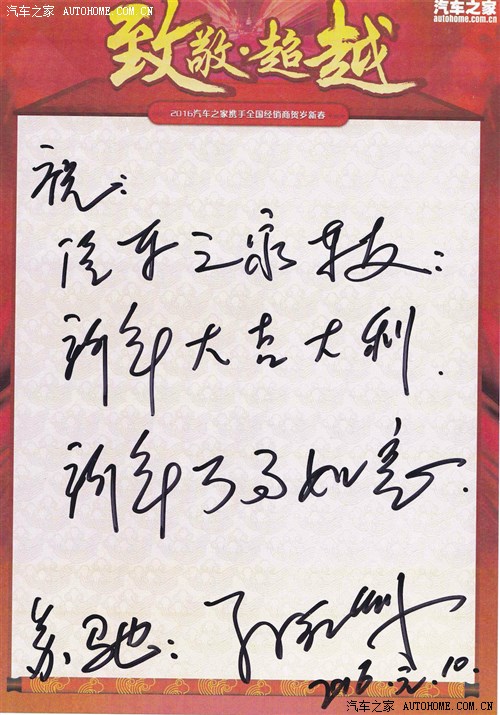 汽车之家 AUTOHOME.COM.CN
汽车之家
autohome.com.cn
致敬·超越
2016汽车之家携手全国经销商贺岁新春
祝:
汽车之家车友:
新年大吉大利.
新年万事如意.
苏驰:
2016.元.10.
汽车之家 AUTOHOME.COM.CN